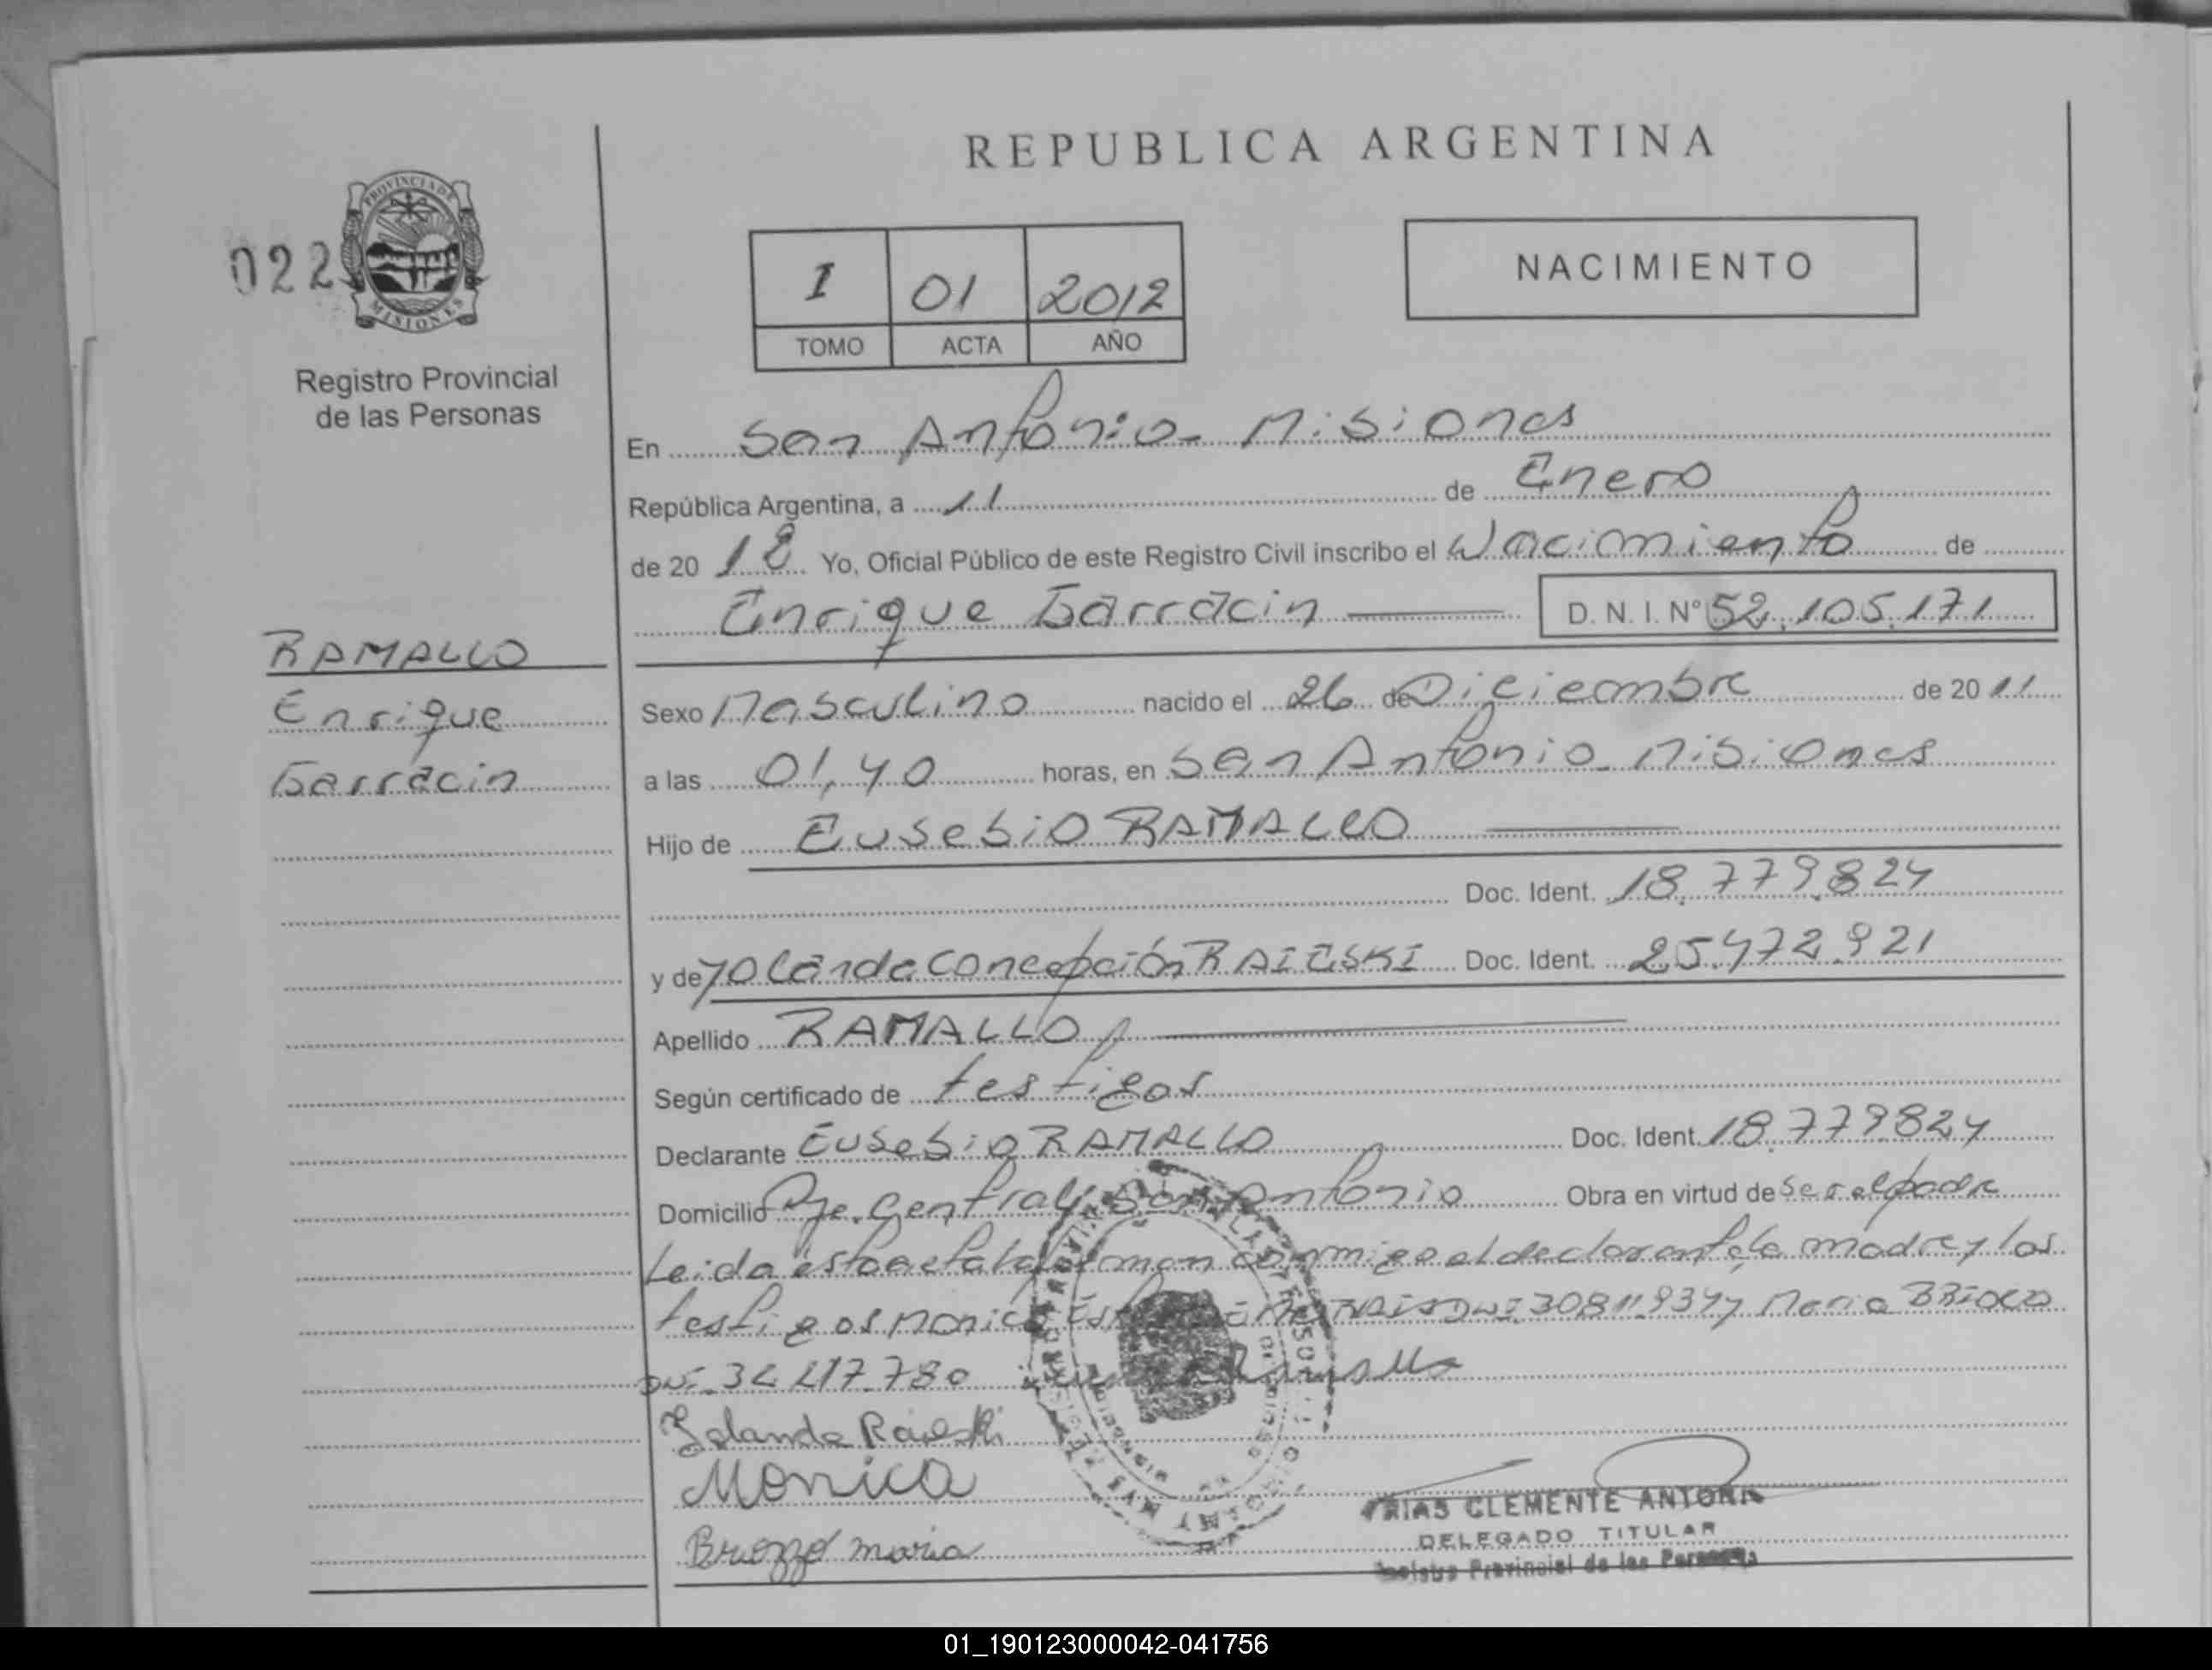 REPUBLICA ARGENTINA
022
PROVINCIA DE
MISIONES
Registro Provincial
de las Personas
I 01 2012
TOMO ACTA AÑO
NACIMIENTO
En San Antonio - Misiones
República Argentina, a 11 de Enero
de 20 12 Yo, Oficial Público de este Registro Civil inscribo el Nacimiento de
Enrique Garracin D. N. I. Nº 52.105.171
RAMALLO
Enrique
Garracin
Sexo Masculino nacido el 26 de Diciembre de 20 11
a las 01,40 horas, en San Antonio - Misiones
Hijo de Eusebio RAMALLO
Doc. Ident. 18.779.824
y de Yolanda Concepción RAIESKI Doc. Ident. 25.472.921
Apellido RAMALLO
Según certificado de testigos
Declarante Eusebio RAMALLO Doc. Ident. 18.779824
Domicilio Pje. Central San Antonio Obra en virtud de ser el padre
Leida esta acta la firman conmigo el declarante, la madre y los
testigos Monica DNI 30811934 y Maria
DNI 34 417.780 Ramallo
Yolanda Raieski
Monica
Brozzo maria
FRIAS CLEMENTE ANTONIO
DELEGADO TITULAR
Registro Provincial de las Personas
01_190123000042-041756